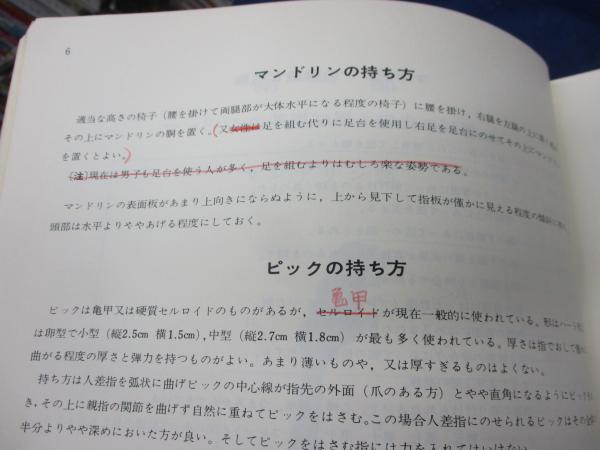 6
マンドリンの持ち方
適当な高さの椅子(腰を掛けて両腿部が大体水平になる程度の椅子)に腰を掛け,右腿を左腿の上に
その上にマンドリンの胴を置く。(又女性は足を組む代りに足台を使用し右足を足台にのせてその上にマンド
を置くとよい。)
(注)現在は男子も足台を使う人が多く,足を組むよりはむしろ楽な姿勢である。
マンドリンの表面板があまり上向きにならぬように,上から見下して指板が僅かに見える程度の
頭部は水平よりややあげる程度にしておく。
ピックの持ち方
亀甲
ピックは亀甲又は硬質セルロイドのものがあるが,セルロイドが現在一般的に使われている。形はハート
は卵型で小型(縦2.5cm 横1.5cm),中型(縦2.7cm 横1.8cm)が最も多く使われている。厚さは指でおして
曲がる程度の厚さと弾力を持つものがよい。あまり薄いものや,又は厚すぎるものはよくない。
持ち方は人差指を弧状に曲げピックの中心線が指先の外面(爪のある方)とやや直角になるように
き,その上に親指の関節を曲げず自然に重ねてピックをはさむ。この場合人差指にのせられるピックはその
半分よりやや深めにおいた方が良い。そしてピックをはさむ指には力を入れてはいけない